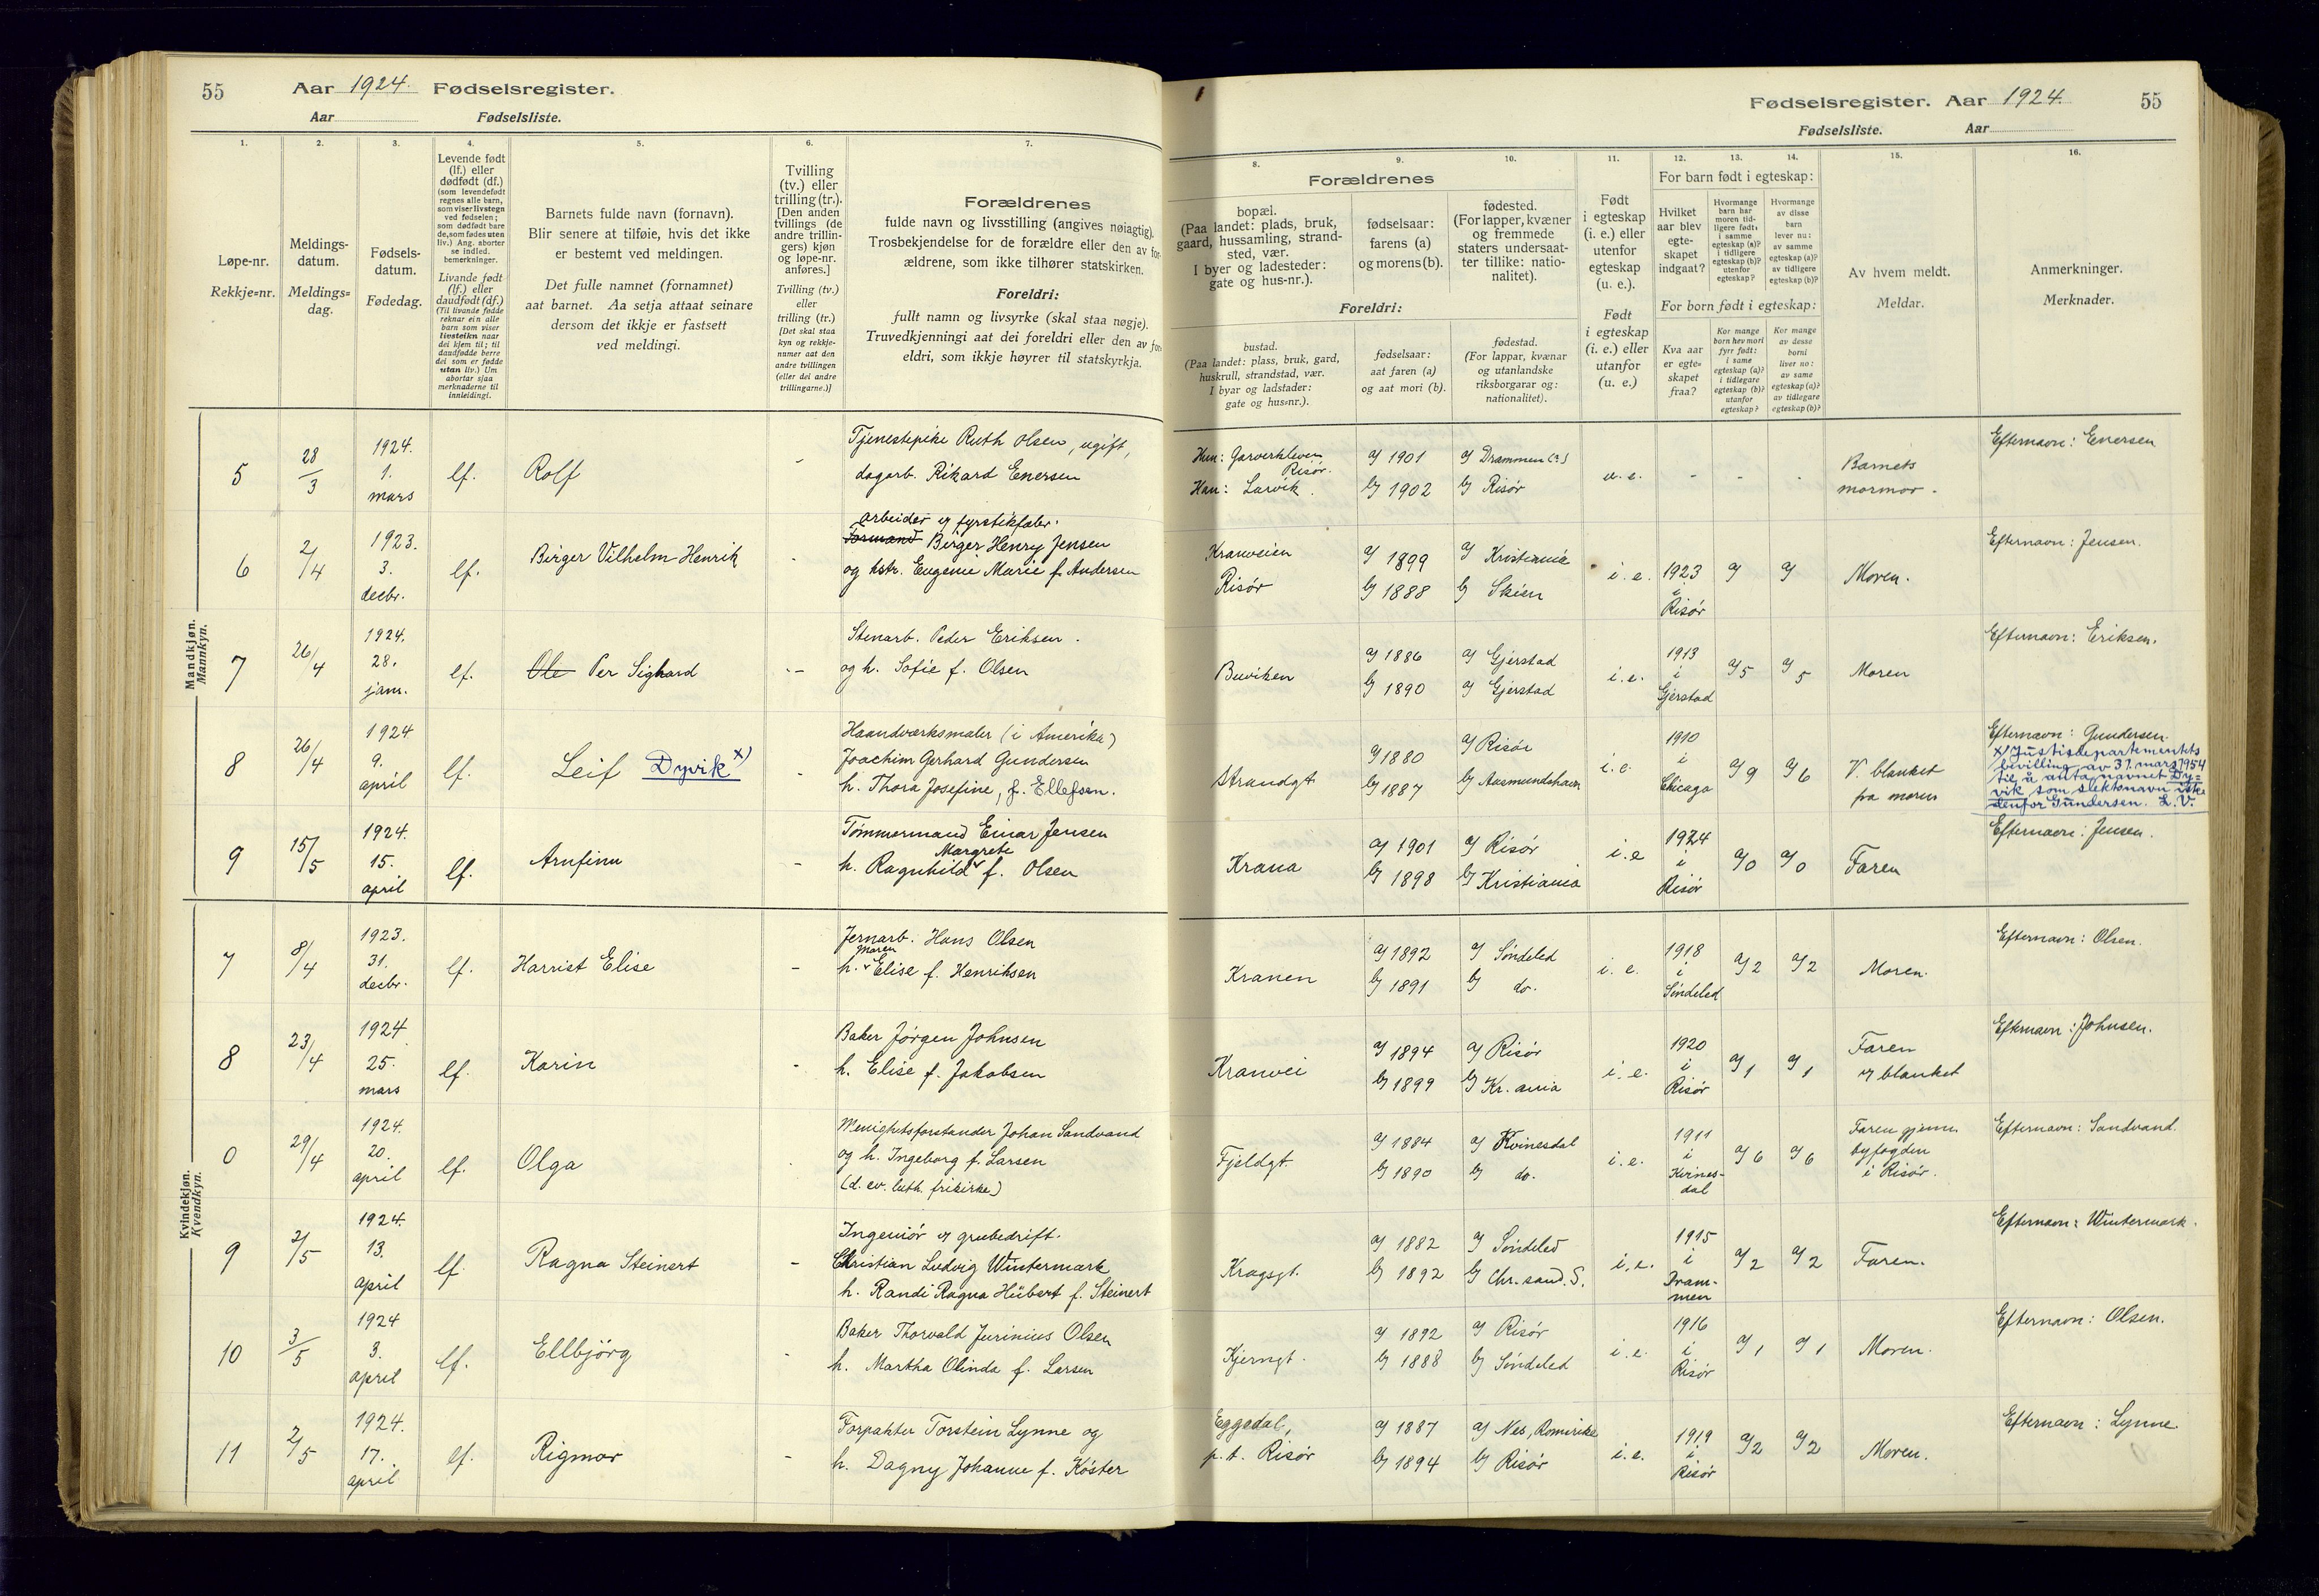 55 Aar 1924. Fødselsregister.
Aar Fødselsliste.
Fødselsregister. Aar 1924. 55
Fødselsliste. Aar
1. 2. 3. 4. 5. 6. 7.
Løpe-nr.
Rekkje=nr.
Meldings-
datum.
Meldings=
dag.
Fødsels-
datum.
Fødedag.
Levende født
(lf.) eller
dødfødt (df.)
(som levendefødt
regnes alle barn,
som viser livstegn
ved fødselen;
som dødfødt bare
de, som fødes uten
liv.) Ang. aborter
se indled.
bemerkninger.
Livande født
(lf.) eller
daudfødt (df.)
(Til livande fødde
reknar ein alle
barn som viser
livsteikn naar
dei kjem til; til
daudfødde berre
dei som er fødde
utan liv.) Um
abortar sjaa
merknaderne til
innleidingi.
Barnets fulde navn (fornavn).
Blir senere at tilføie, hvis det ikke
er bestemt ved meldingen.
Det fulle namnet (fornamnet)
aat barnet. Aa setja attaat seinare
dersom det ikkje er fastsett
ved meldingi.
Tvilling
(tv.) eller
trilling (tr.).
[Den anden
tvillings (de
andre trillin-
gers) kjøn
og løpe-nr.
anføres.]
Tvilling (tv.)
eller
trilling (tr.)
[Det skal staa
kyn og rekkje-
numer aat den
andre tvillingen
(eller dei andre
trillingarne.)]
Forældrenes
fulde navn og livsstilling (angives nøiagtig).
Trosbekjendelse for de forældre eller den av for-
ældrene, som ikke tilhører statskirken.
Foreldri:
fullt namn og livsyrke (skal staa nøgje).
Truvedkjenningi aat dei foreldri eller den av for-
eldri, som ikkje høyrer til statskyrkja.
8. 9. 10. 11. 12. 13. 14. 15. 16.
Forældrenes
bopæl.
(Paa landet: plads, bruk,
gaard, hussamling, strand-
sted, vær.
I byer og ladesteder:
gate og hus-nr.).
fødselsaar:
farens (a)
og morens (b).
fødested.
(For lapper, kvæner
og fremmede
staters undersaat-
ter tillike: natio-
nalitet).
Foreldri:
bustad.
(Paa landet: plass, bruk, gard,
huskrull, strandstad, vær.
I byar og ladstader:
gate og hus=nr.).
fødselsaar:
aat faren (a)
og aat mori (b).
fødestad.
(For lappar, kvænar
og utanlandske
riksborgarar og:
nationalitet).
Født
i egteskap
(i. e.) eller
utenfor
egteskap
(u. e.).
Født
i egteskap
(i. e.) eller
utanfor
(u. e.)
For barn født i egteskap:
Hvilket
aar blev
egte-
skapet
indgaat?
Hvormange
barn har
moren tid-
ligere født:
i samme
egteskap (a)?
i tidligere
egteskap (b)?
utenfor
egteskap?
Hvormange
av disse
barn
lever nu:
av samme
egteskap (a)?
av tidligere
egteskap (b)?
For born født i egteskap:
Kva aar
er egte-
skapet
fraa?
Kor mange
born hev mori
fyrr født:
i same
egteskap (a)?
i tidlegare
egteskap (b)?
utanfor
egteskap?
Kor mange
av desse
borni
liver no:
av same
egteskap (a)?
av tidlegare
egteskap (b)?
Av hvem meldt.
Meldar.
Anmerkninger.
Merknader.
Mandkjøn.
Mannkyn.
5 28/3 1924. 1. mars lf. Rolf -
Tjenestepike Ruth Olsen, ugift,
dagarb. Rikard Enersen
Hun: Garverkleven Risør.
Han: Larvik.
a) 1901 a) Drammen (?)
b) 1902 b) Risør
u. e. - - -
Barnets
mormor.
Efternavn: Enersen
6 2/4 1923. 3. decbr. lf. Birger Vilhelm Henrik -
arbeider v fyrstikfabr.
Formand Birger Henry Jensen
og hstr. Eugenie Marie f. Andersen
Kranveien
Risør
a) 1899 a) Kristiania
b) 1888 b) Skien
i. e. 1923 i Risør
Moren.
Efternavn: Jensen.
7 26/4 1924. 28. janr. lf. Ole Per Sighard -
Stenarb. Peder Eriksen.
og h. Sofie f. Olsen
Buviken
a) 1886 a) Gjerstad
b) 1890 a) Gjerstad
i. e. 1913 i Gjerstad a) 5 a) 5
Moren
Efternavn: Eriksen.
8 26/4 1924 9. april lf. Leif Dyvik x) -
Haandværksmaler (i Amerika)
Joachim Gerhard Gundersen
h. Thora Josefine, f. Ellefsen.
Strandgt
a) 1880 a) Risør
b) 1887 b) Aasmundshavn
i. e. 1910 i Chicago a) 9 a) 6
V. blanket
fra moren
Efternavn: Gundersen.
x) Justisdepartementets
bevilling av 31. mars 1954
til å anta navnet Dy=
vik som slektsnavn iste
denfor Gundersen. L.V.
9 15/5 1924. 15. april lf. Arnfinn -
Tømmermand Einar Jensen
Margrete
h. Ragnhild f. Olsen
Krana
a) 1901 a) Risør
b) 1898 b) Kristiania
i. e 1924 i Risør a) 0 a) 0
Faren
Efternavn: Jensen.
Kvindekjøn.
Kvendkyn.
7 8/4 1923. 31. decbr. lf. Harriet Elise -
Jernarb. Hans Olsen
Maren
h. Elise f. Henriksen
Kranen
a) 1892 a) Søndeled
b) 1891 b) do.
i. e. 1918 i Søndeled a) 2 a) 2
Moren.
Efternavn: Olsen.
8 23/4 1924 25. mars lf. Karin -
Baker Jørgen Johnsen
h. Elise f. Jakobsen
Kranvei
a) 1894 a) Risør
b) 1899 b) Kr. ania
i. e. 1920 i Risør a) 1 a) 1
Faren
v blanket
Efternavn: Johnsen.
0 29/4 1924. 20. april lf. Olga
Menighetsforstander Johan Sandvand
og h. Ingeborg f. Larsen
(d. ev. luth. frikirke)
Fjeldgt.
a) 1884 a) Kvinesdal
b) 1890 b) do.
i. e. 1911 i Kvines-dal a) 6 a) 6
Faren gjennem
byfogden
i Risør.
Efternavn: Sandvand.
9 2/5 1924. 13. april lf. Ragna Steinert -
Ingeniør v grubedrift.
Christian Ludvig Wintermark
h. Randi Ragna Hübert f. Steinert
Kragsgt.
a) 1882 a) Søndeled
b) 1892 b) Chr. sand. S.
i. e. 1915 i Dram-men a) 2 a) 2
Faren.
Efternavn: Wintermark.
10 3/5 1924 3. april lf. Ellbjörg -
Baker Thorvald Jurinius Olsen
h. Martha Olinda f. Larsen
Kjerngt.
a) 1892 a) Risør
b) 1888 b) Søndeled
i. e. 1916 i Risør a) 1 a) 1
Moren.
Efternavn: Olsen.
11 2/5 1924. 17. april lf. Rigmor -
Forpakter Torstein Lynne og
h. Dagny Johanne f. Köster
Eggedal,
p. t. Risør
a) 1887 a) Nes, Romerike
b) 1894 b) Risør
i. e. 1919 i Risør a) 2 a) 2
Moren.
Efternavn: Lynne